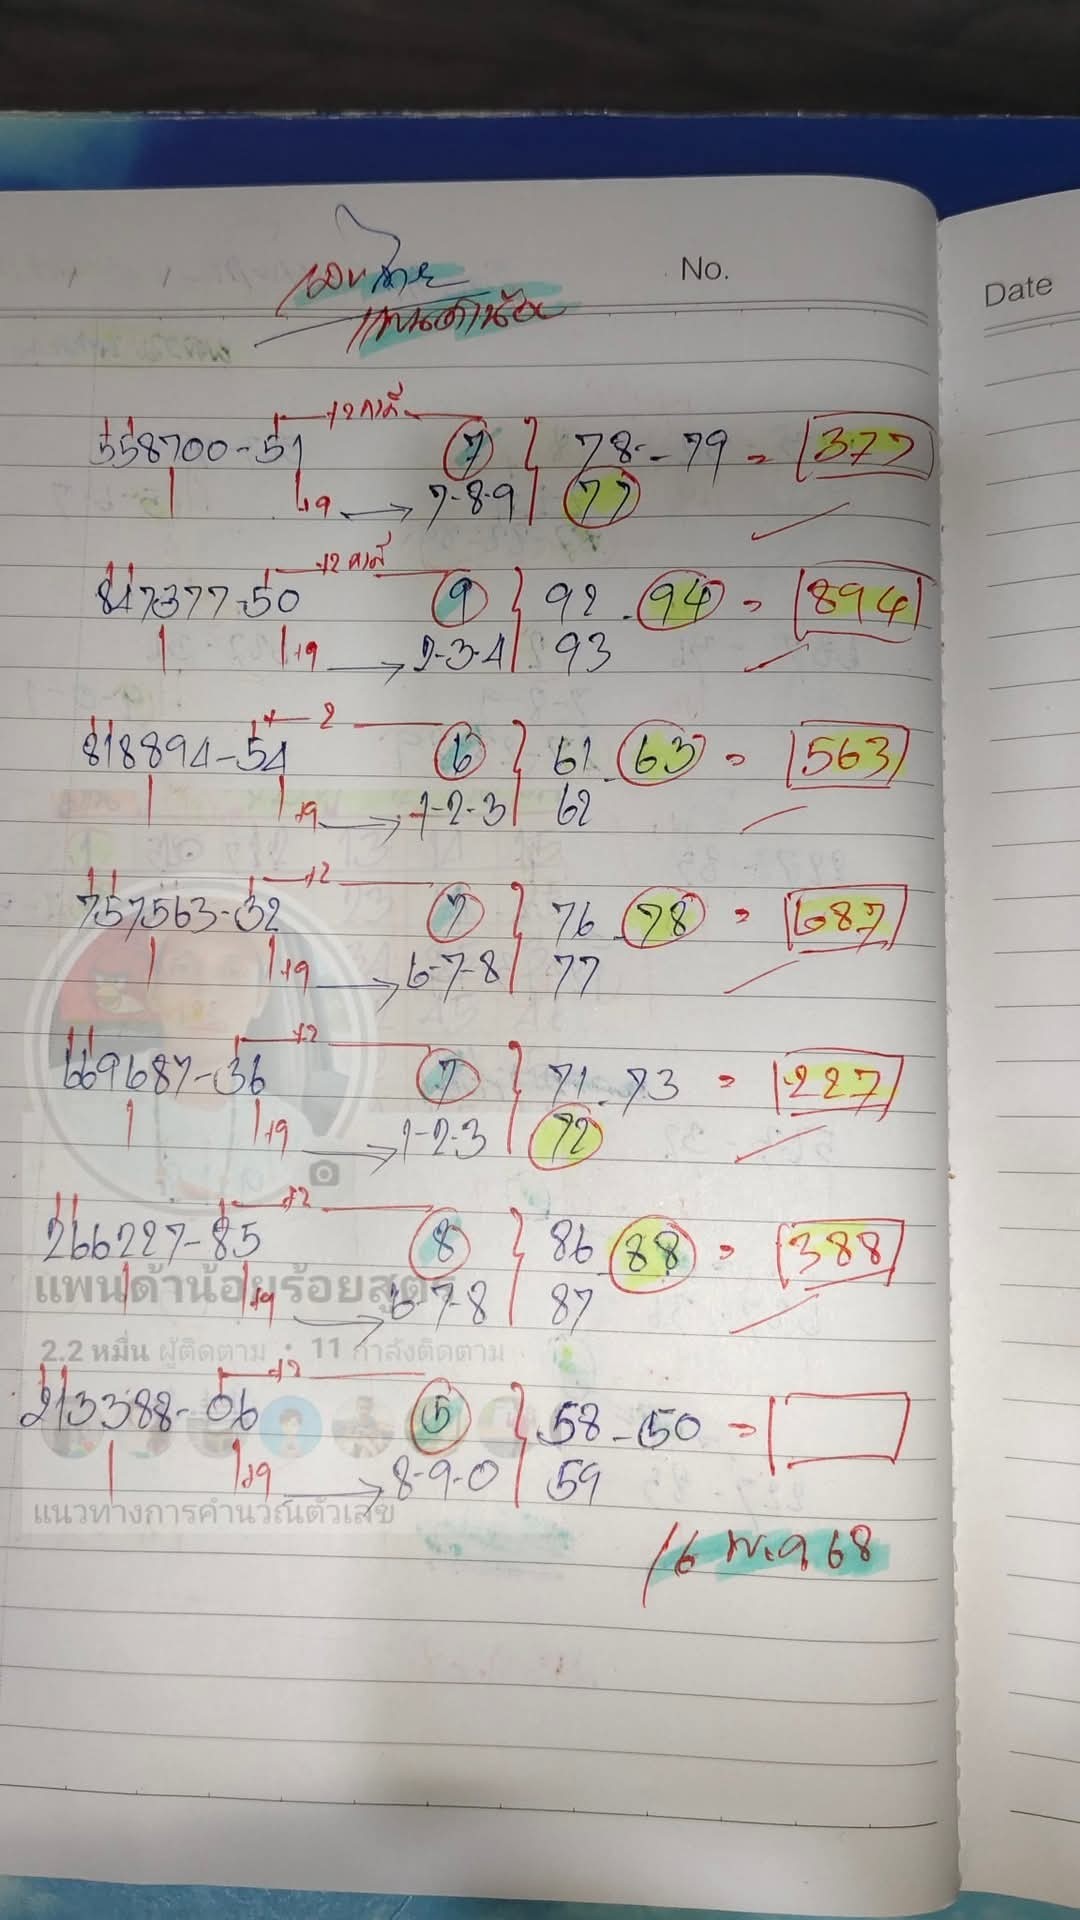 No.
Date
แพนด้าน้อย
558700-51 +2 คงที่ 7 78 - 79 = 377
+9 → 7-8-9 77
847377-50 +2 คงที่ 9 92 - 94 = 894
+9 → 2-3-4 93
818894-54 +2 6 61 - 63 = 563
+9 → 1-2-3 62
757563-32 +2 7 76 - 78 = 687
+9 → 6-7-8 77
669687-36 +2 7 71 - 73 = 227
+9 → 1-2-3 72
266227-85 +2 8 86 - 88 = 388
แพนด้าน้อยร้อยสูตร
+9 → 6-7-8 87
2.2 หมื่น ผู้ติดตาม • 11 กำลังติดตาม
213388-06 +2 5 58 - 50 =
+9 → 8-9-0 59
แนวทางการคำนวณตัวเลข
16 พ.ย 68